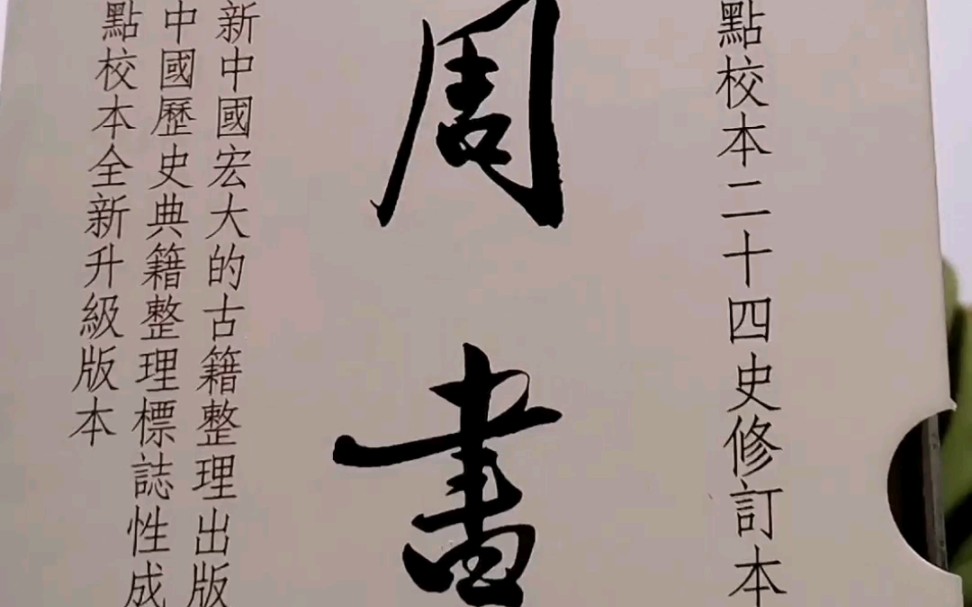 點校本二十四史修訂本
周書
新中國宏大的古籍整理出版
中國歷史典籍整理標誌性成
點校本全新升級版本